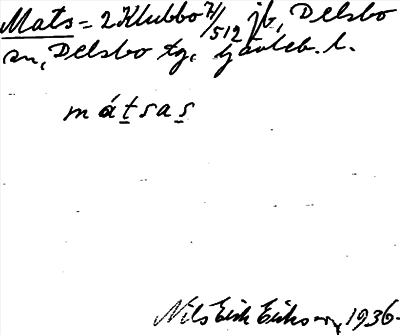 Mats = 2 Klubbo 7/512 jb, Delsbo
sn, Delsbo tg, Gävleb. l.
mátsas
Nils Erik Eriksson, 1936.